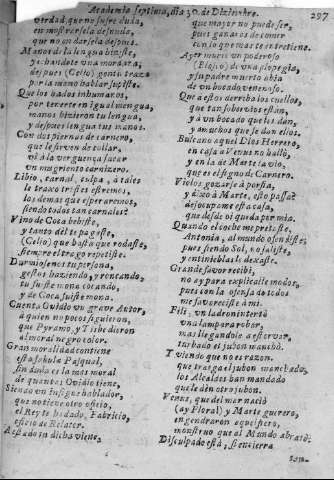 Academia septima, dia 30. de Diziembre.
297
verdad, que no sufre duda,
en mostrarsela desnuda,
que no en darsela despues.
Mano te da la lengua
y echandote una morata,
despues (Celio) gentil traza
por la mano hablar supiste.
Que los hados inhumanos,
por tenerte en igual mengua,
manos hizieron tu lengua,
y despues lengua tus manos.
Con dos piernas de carnero,
que le sirven de collar,
vi à la verguença sacar
un mugriento carnizero.
Libio, carnal, culpa, ò tales
le traxo tristes estremos,
los demas que esperaremos,
siendo todos tan carnales?
Vino de Coca bebiste,
y tanto dèl te pagaste,
(Celio) que hasta que rodaste,
siempre el trago repetiste.
Durmiosenos tu persona,
gestos haziendo, y roncando,
tu sueño mona cocando,
y de Coca fuiste mona.
Cuenta Ovidio un grave Autor,
à quien no pocos siguieron,
que Pyramo, y Tisbe dieron
al moral negro color.
Gran moralidad contiene
esta fabula Pasqual,
sin duda es la mas moral
de quantas Ovidio tiene.
Siendo un insigne hablador,
que no tiene otro oficio,
el Rey te ha dado, Fabricio,
oficio de Relator.
Acertado en dicha viene,
que mayor no puede ser,
pues ganaràs de comer
con lo que mas te entretiene.
Ayer murió un poderoso
(Eliso) de una
y su padre muerto avia
de un bocado venenoso.
Que a estos derriba los cuellos,
que tan sobervios estàn,
yà un bocado que les dan,
y à muchos que se dan ellos.
Bulcano aquel Dios Herrero,
en casa à Venus no hallò,
y en la de Marte la viò,
que es el signo de Carnero.
Violos gozarse à porfia,
y dixo à Marte, ojo
desocupame esta casa,
que desde oi queda por mia.
Quando el coche me prestaste,
Antonia, al mundo ofendiste;
pues siendo Sol, no saliste,
y en tinieblas le dexaste.
Grande favor recibi
no ay para explicalle modos,
pues con la ofensa de todos
me favoreciste à mi.
Fili, un ladron intentò
una lampara robar,
mas llegandole a
turbado el jubon manchò.
Y viendo que no es razon,
que traiga el jubon manchado,
los Alcaldes han mandado
que le den otro jubon.
Venus, que del mar naciò
(ay Floral) y Marte guerrero,
engendraron
monstruo que al Mundo abrasò.
Disculpado està; si encierra